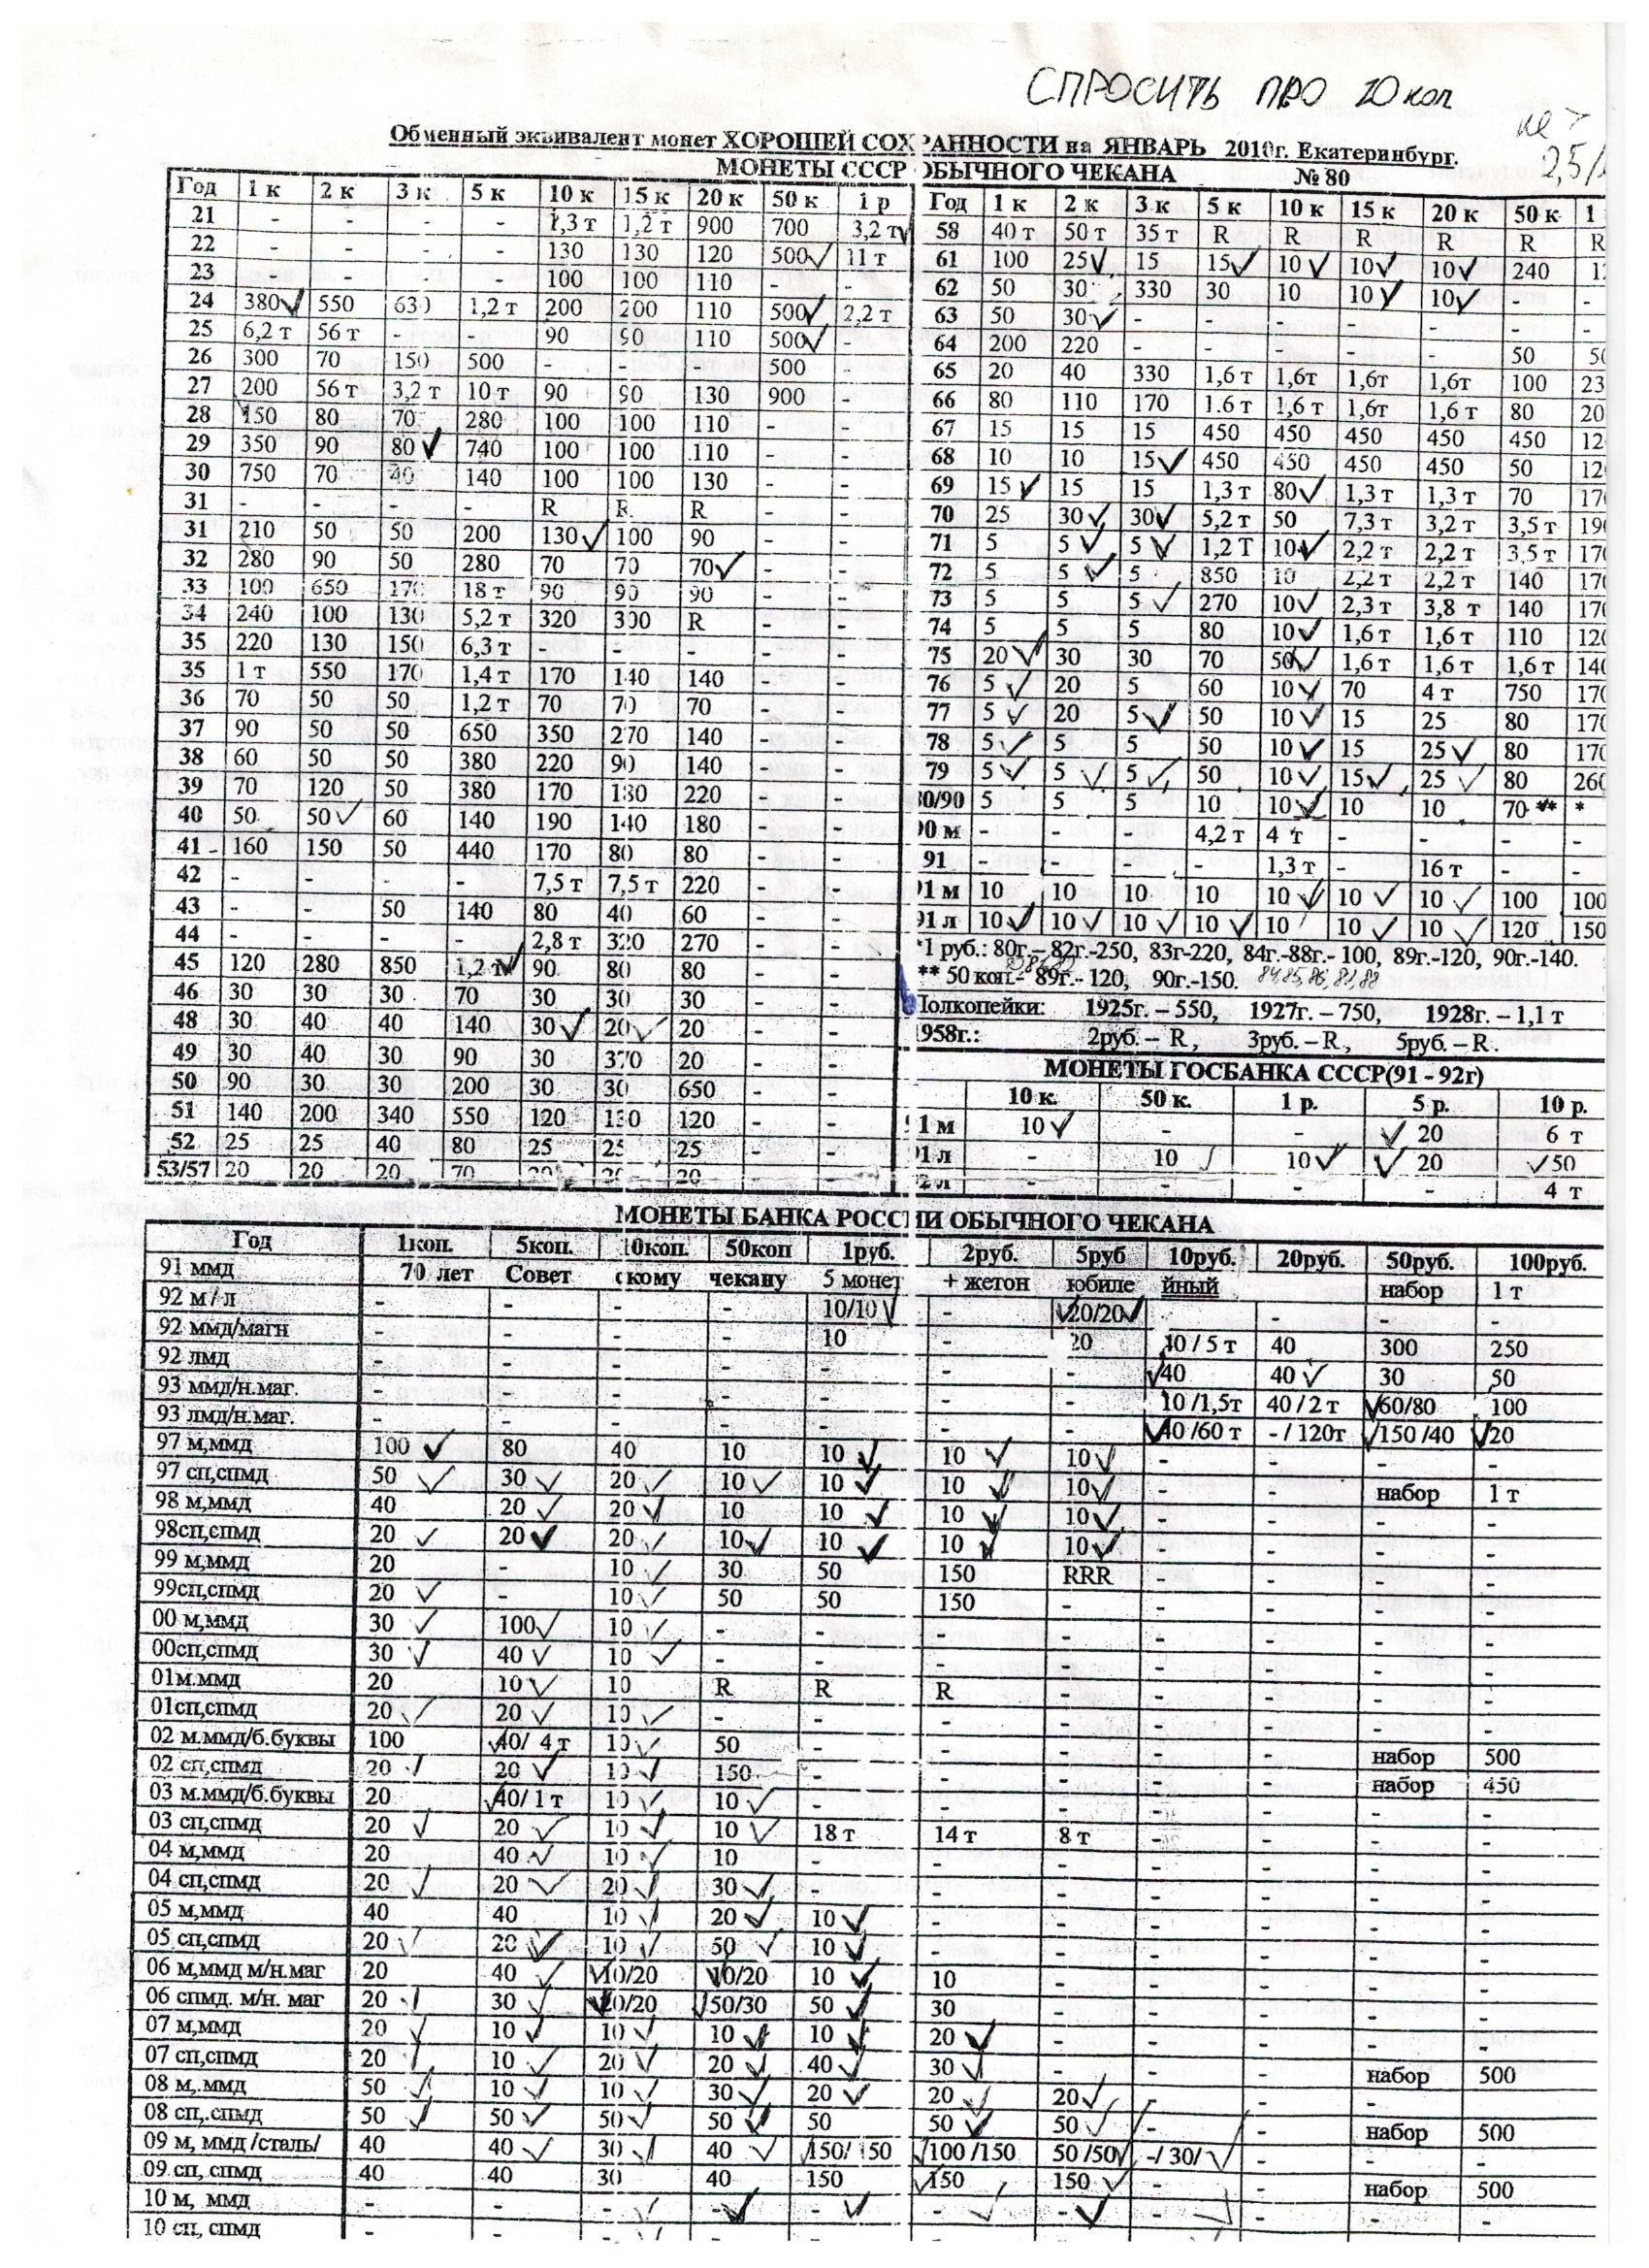 СПРОСИТЬ ПРО 10 коп
Обменный эквивалент монет ХОРОШЕЙ СОХРАННОСТИ на ЯНВАРЬ 2010г. Екатеринбург.
МОНЕТЫ СССР ОБЫЧНОГО ЧЕКАНА № 80
Год 1 к 2 к 3 к 5 к 10 к 15 к 20 к 50 к 1 р
21 - - - - 1,3 т 1,2 т 900 700 3,2 т
22 - - - - 130 130 120 500 11 т
23 - - - - 100 100 110 - -
24 380 550 630 1,2 т 200 200 110 500 2,2 т
25 6,2 т 56 т 90 90 110 500
26 300 70 150 500 500
27 200 56 т 3,2 т 10 т 90 90 130 900
28 150 80 70 280 100 100 110
29 350 90 80 740 100 100 110 - -
30 750 70 40 140 100 100 130 - -
31 - - - - R R R - -
31 210 50 50 200 130 100 90 - -
32 280 90 50 280 70 70 70 - -
33 100 650 170 18 т 90 90 90 - -
34 240 100 130 5,2 т 320 300 R - -
35 220 130 150 6,3 т - - - - -
35 1 т 550 170 1,4 т 170 140 140 - -
36 70 50 50 1,2 т 70 70 70 - -
37 90 50 50 650 350 270 140 - -
38 60 50 50 380 220 90 140 - -
39 70 120 50 380 170 180 220 - -
40 50 50 60 140 190 140 180 - -
41 160 150 50 440 170 80 80 - -
42 - - - - 7,5 т 7,5 т 220 - -
43 - - 50 140 80 40 60 - -
44 - - - - 2,8 т 320 270 - -
45 120 280 850 1,2 т 90 80 80 - -
46 30 30 30 70 30 30 30 - -
48 30 40 40 140 30 20 20 - -
49 30 40 30 90 30 370 20 - -
50 90 30 30 200 30 30 650 - -
51 140 200 340 550 120 130 120 - -
52 25 25 40 80 25 25 25 - -
53/57 20 20 20 70 20 20 20 - -
Год 1 к 2 к 3 к 5 к 10 к 15 к 20 к 50 к 1
58 40 т 50 т 35 т R R R R R R
61 100 25 15 15 10 10 10 240
62 50 30 330 30 10 10 10 - -
63 50 30 - - - - - - -
64 200 220 50
65 20 40 330 1,6 т 1,6т 1,6т 1,6т 100
66 80 110 170 1.6 т 1,6 т 1,6т 1,6 т 80
67 15 15 15 450 450 450 450 450
68 10 10 15 450 450 450 450 50
69 15 15 15 1,3 т 80 1,3 т 1,3 т 70
70 25 30 30 5,2 т 50 7,3 т 3,2 т 3,5 т
71 5 5 5 1,2 Т 10 2,2 т 2,2 т 3,5 т
72 5 5 5 850 10 2,2 т 2,2 т 140
73 5 5 5 270 10 2,3 т 3,8 т 140
74 5 5 5 80 10 1,6 т 1,6 т 110
75 20 30 30 70 50 1,6 т 1,6 т 1,6 т
76 5 20 5 60 10 70 4 т 750
77 5 20 5 50 10 15 25 80
78 5 5 5 50 10 15 25 80
79 5 5 5 50 10 15 25 80
80/90 5 5 5 10 10 10 10 70 ** *
90 м 4,2 т 4 т - - - -
91 - - - - 1,3 т - 16 т - -
91 м 10 10 10 10 10 10 10 100
91 л 10 10 10 10 10 10 10 120
* 1 руб.: 80г.- 82г.-250, 83г-220, 84г.-88г.- 100, 89г.-120, 90г.-140.
** 50 коп.- 89г.- 120, 90г.-150.
Полкопейки: 1925г. – 550, 1927г. – 750, 1928г. – 1,1 т
1958г.: 2руб. – R , 3руб. – R , 5руб. – R .
МОНЕТЫ ГОСБАНКА СССР(91 - 92г)
10 к. 50 к. 1 р. 5 р. 10 р.
91 м 10 - - 20 6 т
91 л - 10 10 20 50
92 л - - - - 4 т
МОНЕТЫ БАНКА РОССИИ ОБЫЧНОГО ЧЕКАНА
Год 1коп. 5коп. 10коп. 50коп 1руб. 2руб. 5руб 10руб. 20руб. 50руб. 100руб.
91 ммд 70 лет Совет скому чекану 5 монет + жетон юбиле йный набор 1 т
92 м / л - - - - 10/10 - 20/20
92 ммд/магн - - - - 10 - 20 10 / 5 т 40 300 250
92 лмд - - - - - - - 40 40 30 50
93 ммд/н.маг. - - - - - - - 10 /1,5т 40 / 2 т 60/80 100
93 лмд/н.маг. - - - - - - - 40 /60 т - / 120т 150 /40 20
97 м,ммд 100 80 40 10 10 10 10 - - - -
97 сп,спмд 50 30 20 10 10 10 10 - - набор 1 т
98 м,ммд 40 20 20 10 10 10 10 - - - -
98сп,спмд 20 20 20 10 10 10 10 - - - -
99 м,ммд 20 - 10 30 50 150 RRR - - - -
99сп,спмд 20 - 10 50 50 150 - - - - -
00 м,ммд 30 100 10 - - - - - - - -
00сп,спмд 30 40 10 - - - - - - - -
01м.ммд 20 10 10 R R R - - - - -
01сп,спмд 20 20 10 - - - - - - - -
02 м.ммд/б.буквы 100 40/ 4 т 10 50 - - - - - набор 500
02 сп,спмд 20 20 10 150 - - - - - набор 450
03 м.ммд/б.буквы 20 40/ 1 т 10 10 - - - - - - -
03 сп,спмд 20 20 10 10 18 т 14 т 8 т - - - -
04 м,ммд 20 40 10 10 - - - - - - -
04 сп,спмд 20 20 20 30 - - - - - - -
05 м,ммд 40 40 10 20 10 - - - - - -
05 сп,спмд 20 20 10 50 10 - - - - - -
06 м,ммд м/н.маг 20 40 10/20 10/20 10 10 - - - - -
06 спмд. м/н. маг 20 30 20/20 50/30 50 30 - - - - -
07 м,ммд 20 10 10 10 10 20 - - - - -
07 сп,спмд 20 10 20 20 40 30 - - - набор 500
08 м,.ммд 50 10 10 30 20 20 20 - - - -
08 сп,.спмд 50 50 50 50 50 50 50 - - набор 500
09 м, ммд /сталь/ 40 40 30 40 150/ 150 100 /150 50 /50 -/ 30/ - - -
09 сп, спмд 40 40 30 40 150 150 150 - - набор 500
10 м, ммд - - - - - - - - - - -
10 сп, спмд - - - - - - - - - - -